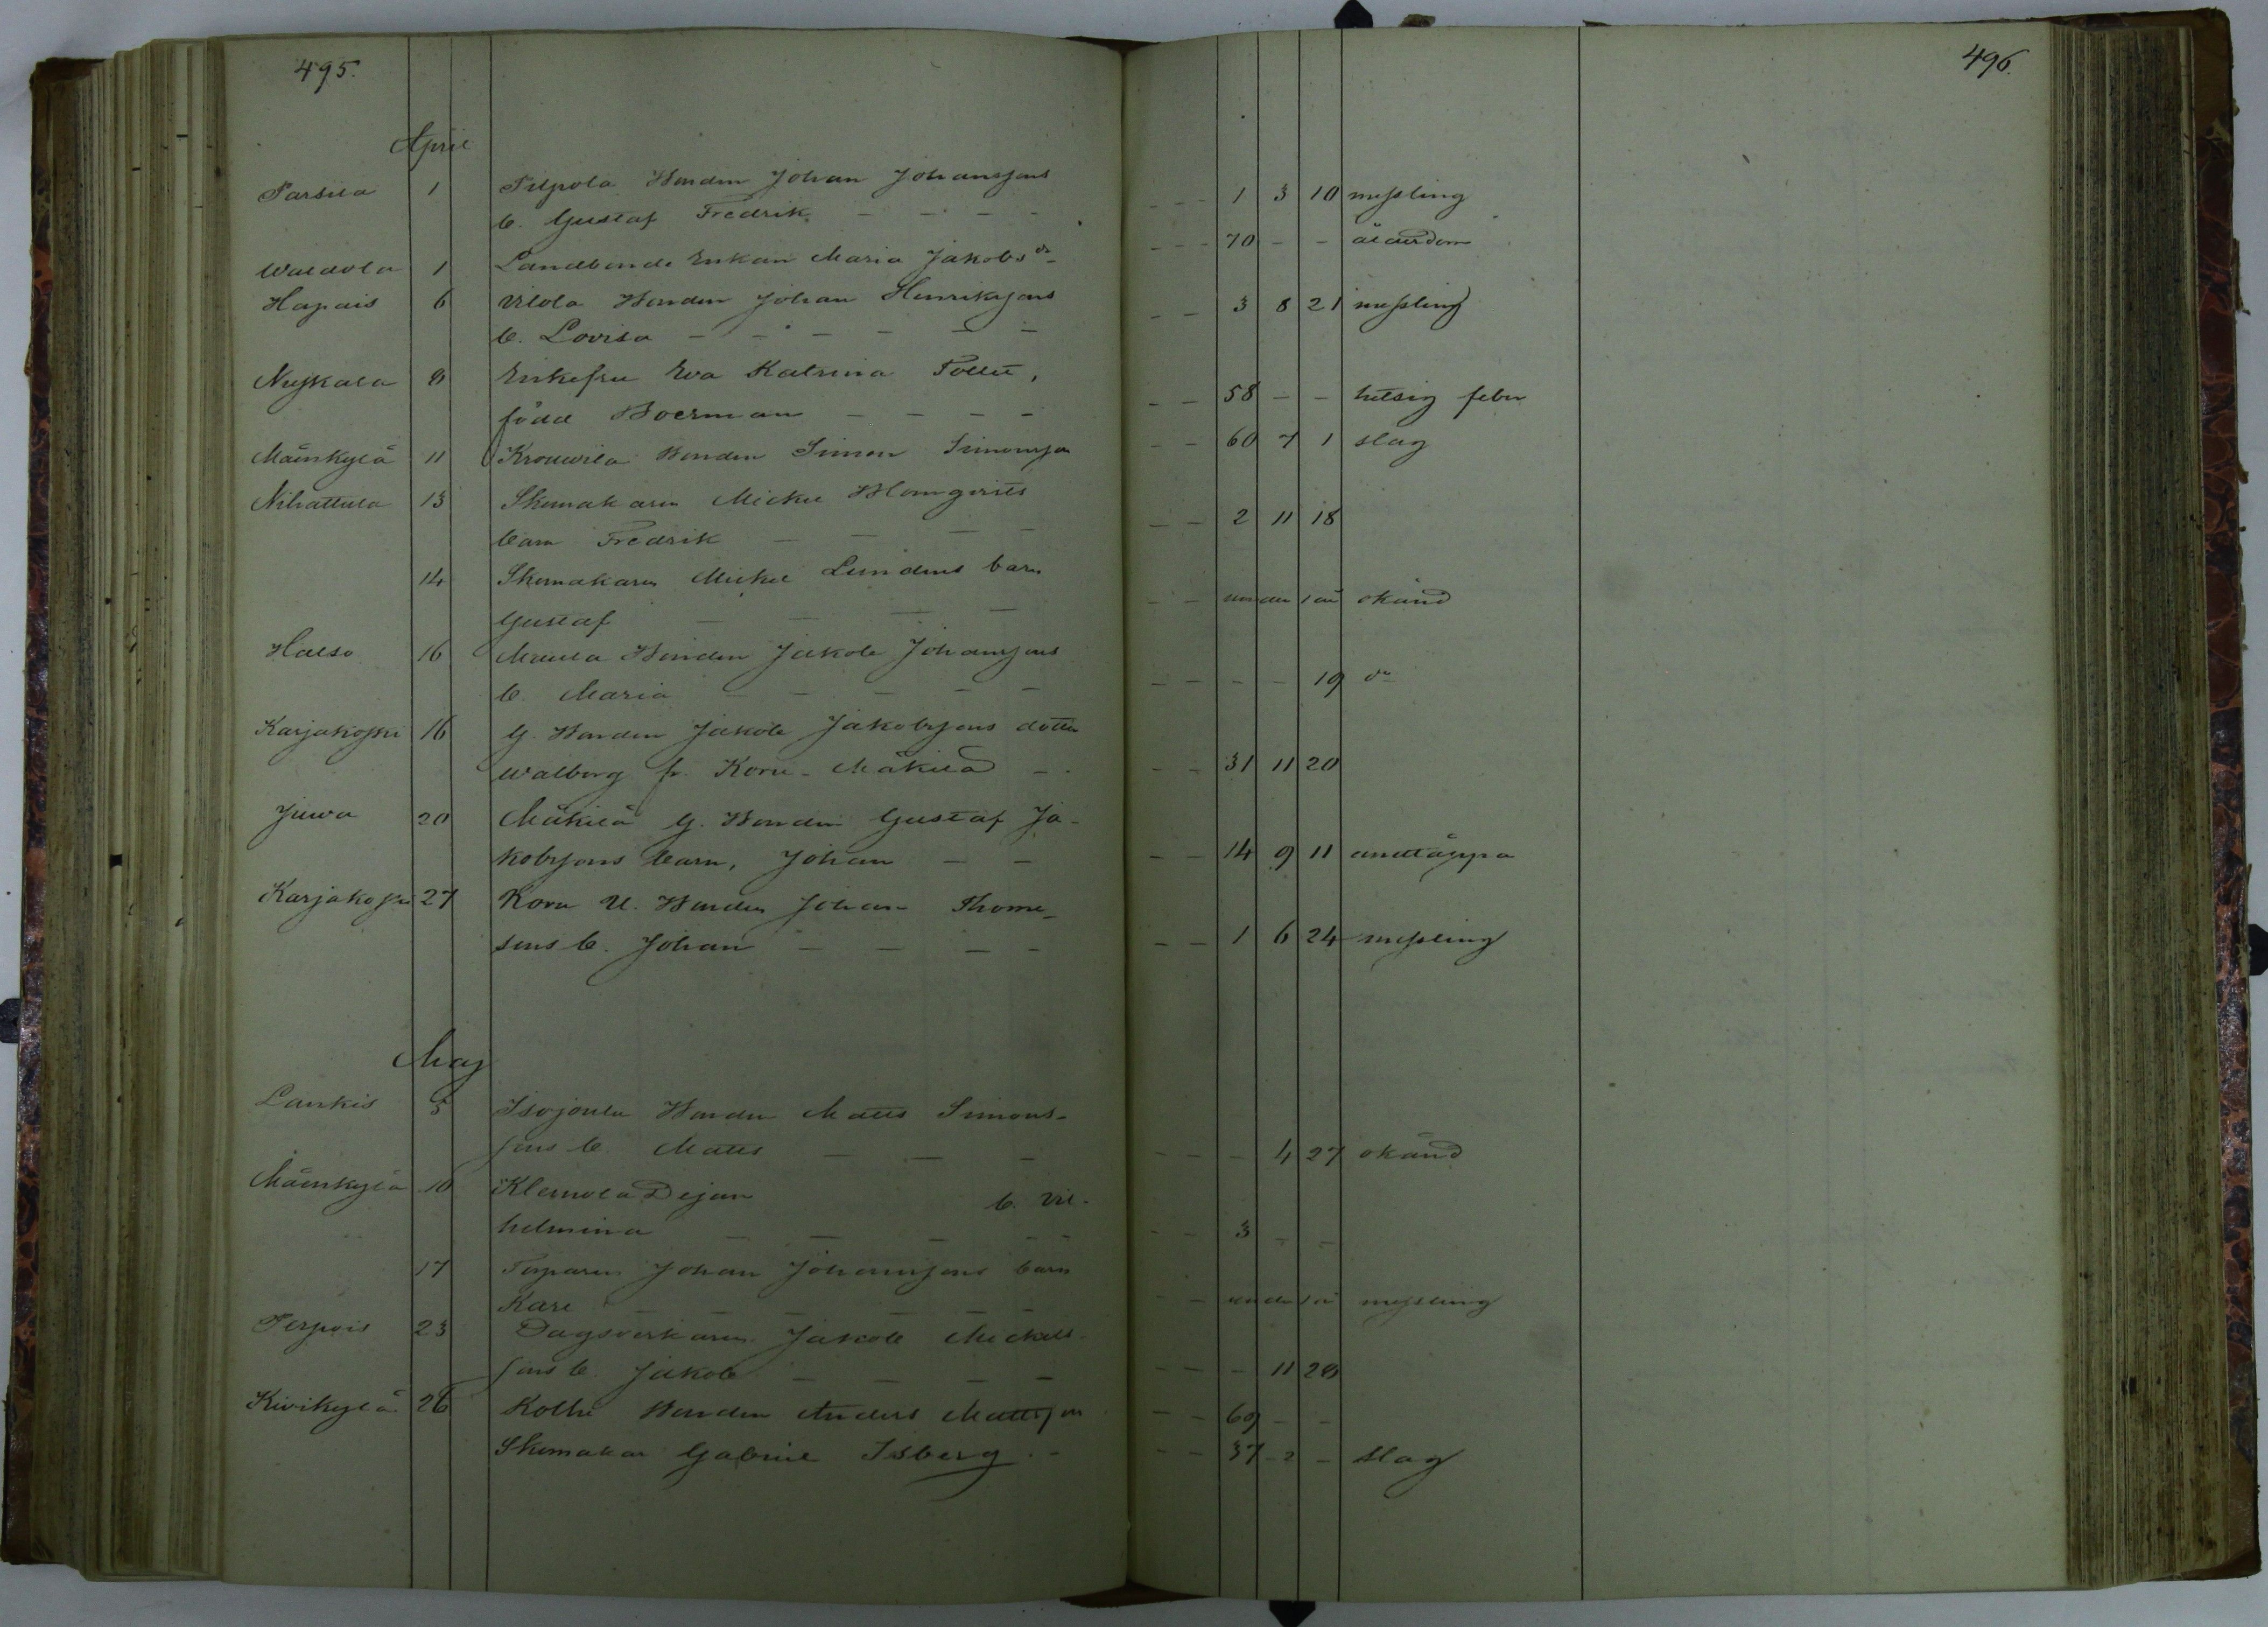 495.
496.
April
Parsila 1 Pilpola Bonden Johan Johanssons
b. Gustaf Fredrik - - - - 1 3 10 messling
Waldola 1 Landbonde Enkan Maria Jakobsdr - - - 70 - - ålderdom
Hapais 6 Vilola Bonden Johan Henrikssons
b. Lovisa - - - - - 3 8 21 messling
Nuskala 8 Enkefru Eva Katrina Pollet,
född Boerman - - - - 58 - - hetsig feber
Mäenkylä 11 Krouwila Bonden Simon Simonsson - - 60 7 1 slag
Nihattula 13 Skomakaren Mickel Blomqvists
barn Fredrik - - - - 2 11 18
14 Skomakaren Mickel Lundens barn
Gustaf - - - - under 1 år okänd
Halso 16 Bonden Jakob Johanssons
b. Maria - - - - - 19 do
Karjakoski 16 g. Bonden Jakob Jakobssons dotter
Walborg fr. Koru-Mäkilä - - 31 11 20
Juwa 20 Mäkilä g. Bonden Gustaf Ja-
kobssons barn, Johan - - 14 9 11 andtäppa
Karjakoski 27 Koru U. Bonden Johan Thome-
sons b. Johan - - - - 1 6 24 messling
Maj
Lankis 5 Isojoula Bonden Matts Simons-
sons b. Matts - - - - 4 27 okänd
Mäenkylä 10 Klemola Dejan b. Vil-
helmina - - - - - 3 - -
17 Torparen Johan Johanssons barn
Karl - - - - - under 1 år messling
Perpois 23 Dagsverkaren Jakob Mickels-
sons b. Jakob - - - - 11 28
Kivikylä 26 Kolhi Bonden Anders Mattsson - - 69 - -
Skomakar Gabriel Isberg - - - 37 2 - slag